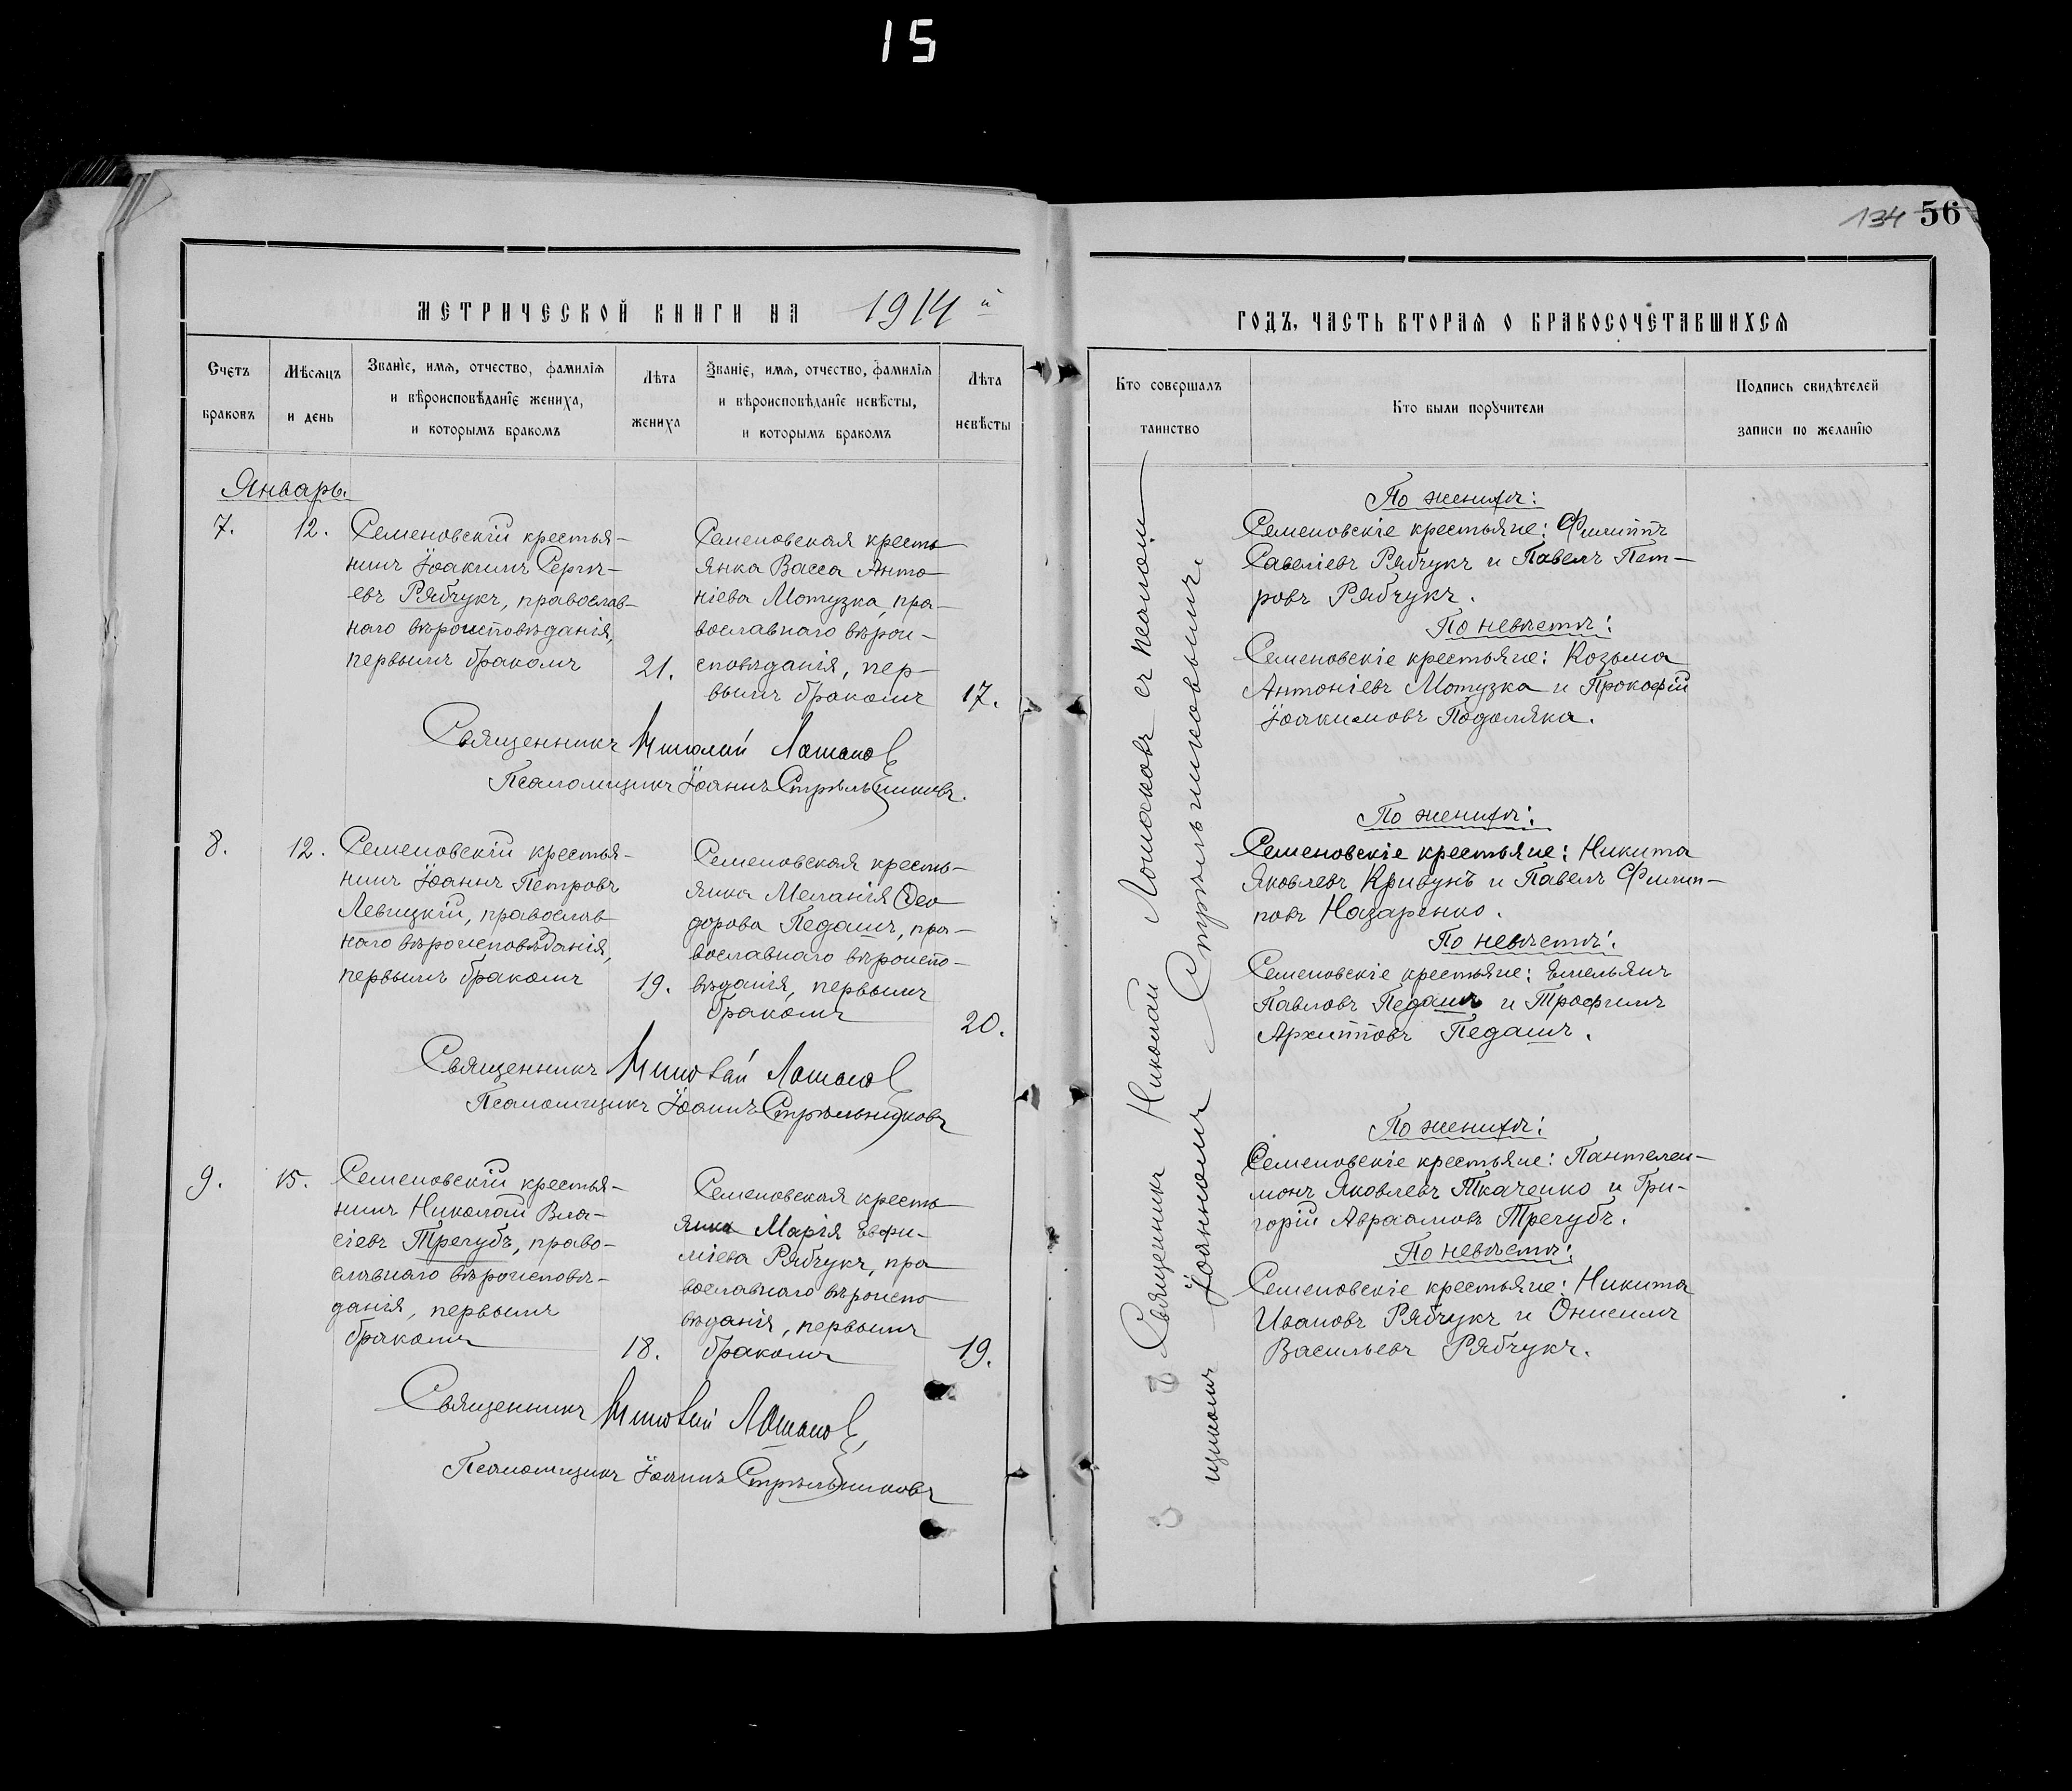 15
134 56
МЕТРИЧЕСКОЙ КНИГИ НА 1914 й
Счетъ браковъ
Мѣсяцъ и день
Званіе, имя, отчество, фамилія
и вѣроисповѣданіе жениха,
и которымъ бракомъ
Лѣта жениха
Званіе, имя, отчество, фамилія
и вѣроисповѣданіе невѣсты,
и которымъ бракомъ
Лѣта невѣсты
Январь.
7.
12.
Семеновскій крестья-
нинъ Іоакимъ Сергѣ-
евъ Рябчукъ, православ-
наго вѣроисповѣданія,
первымъ бракомъ
21.
Семеновская кресть
янка Васса Анто-
ніева Мотузка, пра-
вославнаго вѣрои-
сповѣданія, пер-
вымъ бракомъ
17.
Священникъ Николай Лошаков
Псаломщикъ Іоаннъ Стрѣльниковъ.
8.
12.
Семеновскій крестья-
нинъ Іоаннъ Петровъ
Левицкій, православ
наго вѣроисповѣданія,
первымъ бракомъ
19.
Семеновская кресть-
янка Меланія Ѳео
дорова Педашъ, пра-
вославнаго вѣроиспо-
вѣданія, первымъ
бракомъ
20.
Священникъ Николай Лошаков
Псаломщикъ Іоаннъ Стрѣльниковъ
9.
15.
Семеновскій крестья-
нинъ Николай Вла-
сіевъ Трегубъ, право-
славнаго вѣроисповѣ-
данія, первымъ
бракомъ
18.
Семеновская кресть
янка Марія Евфи-
міева Рябчукъ, пра
вославнаго вѣроиспо
вѣданія, первымъ
бракомъ
19.
Священникъ Николай Лошаков
Псаломщикъ Іоаннъ Стрѣльниковъ
ГОДЪ, ЧАСТЬ ВТОРАЯ О БРАКОСОЧЕТАВШИХСЯ
Кто совершалъ
таинство
Кто были поручители
Подпись свидѣтелей
записи по желанію
Священникъ Николай Лошаковъ съ псалом-
щикомъ Іоанномъ Стрѣльниковымъ.
По женихѣ:
Семеновскіе крестьяне: Филиппъ
Савеліевъ Рябчукъ и Павелъ Пет-
ровъ Рябчукъ.
По невѣстѣ:
Семеновскіе крестьяне: Козьма
Антоніевъ Мотузка и Прокофій
Іоакимовъ Подоляка.
По женихѣ:
Семеновскіе крестьяне: Никита
Яковлевъ Кривунъ и Павелъ Филип-
повъ Назаренко.
По невѣстѣ:
Семеновскіе крестьяне: Емельянъ
Павловъ Педашъ и Трофимъ
Архипповъ Педашъ.
По женихѣ:
Семеновскіе крестьяне: Пантелеи-
монъ Яковлевъ Ткаченко и Гри-
горій Авраамовъ Трегубъ.
По невѣстѣ:
Семеновскіе крестьяне: Никита
Ивановъ Рябчукъ и Онисимъ
Васильевъ Рябчукъ.